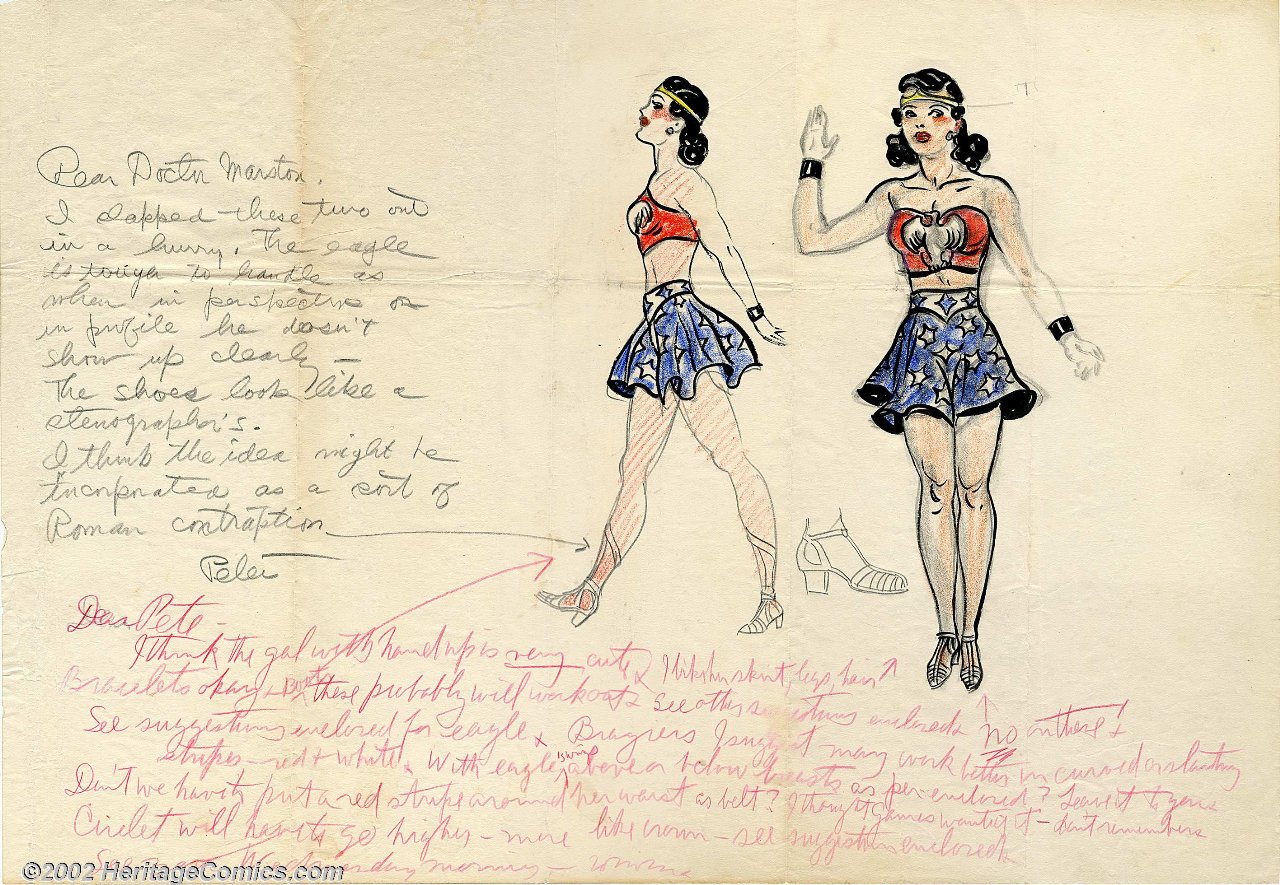 Dear Doctor Marston,
I slapped these two out
in a hurry. The eagle
is tough to handle as
when in perspective or
in profile he doesn't
show up clearly —
The shoes look like a
stenographer's.
I think the idea might be
incorporated as a sort of
Roman contraption
Peter
Dear Pete –
I think the gal with hand up is very cute I like her skirt, legs, hair
Bracelets okay + boots these probably will work out See other suggestions enclosed No on these!
See suggestions enclosed for eagle Bragiers I suggest may work better in curved or slanting
stripes – red + white With eagle's wings above or below breasts as per enclosed? Leave it to you
Don't we have to put a red stripe around her waist as belt? I thought Gaines wanted it – don't remember
Circlet will have to go higher – more like crown – see suggestion enclosed
See you Wednesday morning – WMM
©2002 HeritageComics.com